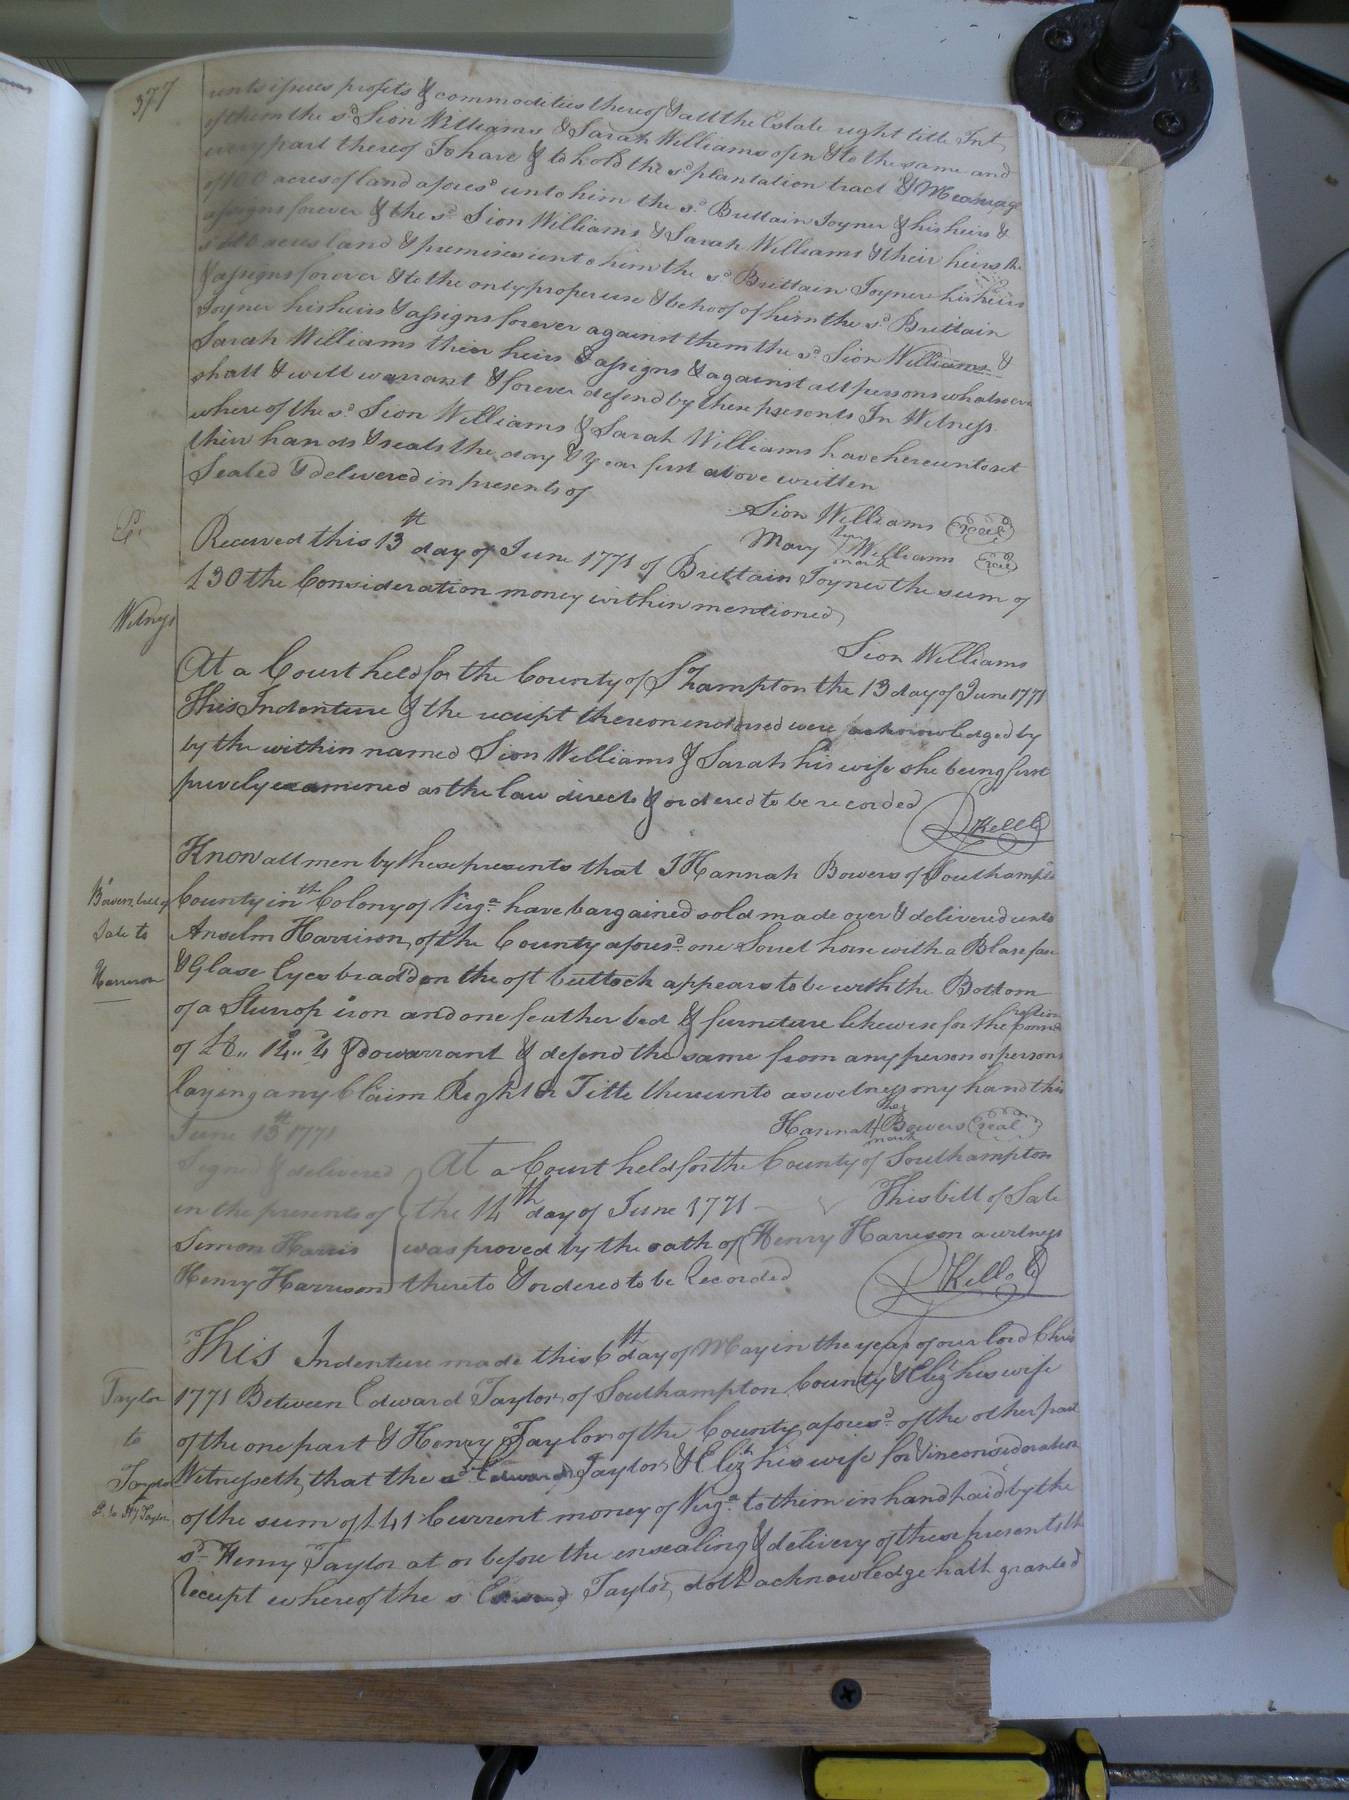 377
rents issues profits & commodities thereof & all the Estate right title Int.
of them the sd. Sion Williams & Sarah Williams of in & to the same and
every part thereof To have & to hold the sd. plantation tract &
of 100 acres of land aforesd. unto him the sd. Brittain Joyner & his heirs &
assigns forever & the sd. Sion Williams & Sarah Williams & their heirs the
sd. 100 acres land & premises unto him the sd. Brittain Joyner his heirs
& assigns forever & to the only proper use & behoof of him the sd. Brittain
Joyner his heirs & assigns forever against them the sd. Sion Williams &
Sarah Williams their heirs & assigns & against all persons whatsoever
shall & will warrant & forever defend by these presents In Witness
whereof the sd. Sion Williams & Sarah Williams have hereunto set
their hands & seals the day & year first above written
Sealed & delivered in presents of
Sion Williams (seal)
Mary her mark Williams (seal)
Received this 13th day of June 1771 of Brittain Joyner the sum of
£30 the Consideration money within mentioned
Witness
Sion Williams
At a Court held for the County of So.hampton the 13 day of June 1771
This Indenture & the receipt thereon endorsed were acknowledged by
by the within named Sion Williams & Sarah his wife she being first
privily examined as the law directs & ordered to be recorded
R Kello
Know all men by these presents that I Hannah Bowers of Southampto
Bowers bill of
County in th Colony of Virga. have bargained sold made over & delivered unto
Sale to
Anselm Harrison of the County aforesd. one Sorrel horse with a Blase face
Harrison
& Glase Eyes bradd on the oft buttock appears to be with the Bottom
of a Sturrop iron and one feather bed & furniture likewise for the
of £8.. 14.. 4 & do warrant & defend the same from any person or persons
laying any Claim Right or Title thereunto as witness my hand this
June 13th 1771
Hannah her mark Bowers (seal)
Signed & delivered
in the presents of
Simon Harris
Henry Harrison
At a Court held for the County of Southampton
the 14th day of June 1771 This bill of Sale
was proved by the oath of Henry Harrison a witness
thereto & ordered to be Recorded
R Kello
This Indenture made this 6th day of May in the year of our lord Chris
Taylor
1771 Between Edward Taylor of Southampton County & Eliz. his wife
to
of the one part & Henry Taylor of the County aforesd. of the other part
Taylor
Witnesseth, that the sd. Edward Taylor & Eliz. his wife for & in consideration
of the sum of £41 Current money of Virga. to them in hand paid by the
sd. Henry Taylor at or before the ensealing & delivery of these presents the
Receipt whereof the s. Edward Taylor doth acknowledge hath granted